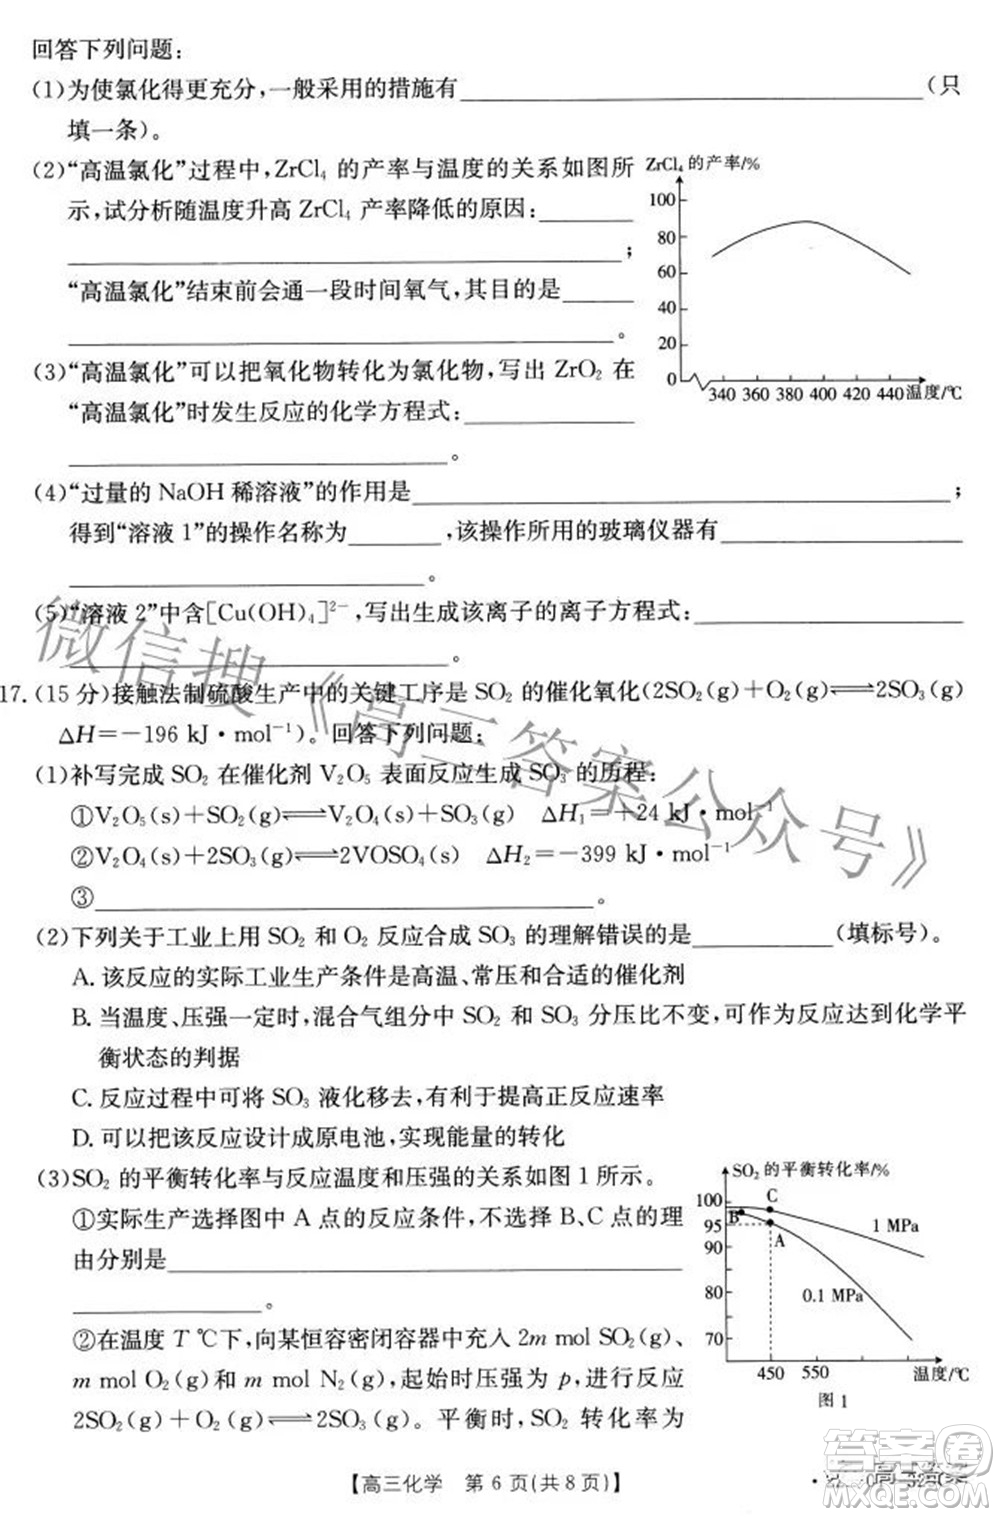 回答下列问题:
(1)为使氯化得更充分,一般采用的措施有____________(只
填一条)。
(2)“高温氯化”过程中,ZrCl₄ 的产率与温度的关系如图所
示,试分析随温度升高 ZrCl₄ 产率降低的原因:____________
____________;
“高温氯化”结束前会通一段时间氧气,其目的是____________
____________。
ZrCl₄ 的产率/%
100
80
60
40
20
0
340 360 380 400 420 440 温度/℃
(3)“高温氯化”可以把氧化物转化为氯化物,写出 ZrO₂ 在
“高温氯化”时发生反应的化学方程式:____________
____________。
(4)“过量的 NaOH 稀溶液”的作用是____________;
得到“溶液 1”的操作名称为______,该操作所用的玻璃仪器有____________
____________。
(5)“溶液 2”中含[Cu(OH)₄]²⁻,写出生成该离子的离子方程式:____________
____________。
17.(15 分)接触法制硫酸生产中的关键工序是 SO₂ 的催化氧化(2SO₂(g)+O₂(g)⇌2SO₃(g)
ΔH=−196 kJ·mol⁻¹)。回答下列问题:
(1)补写完成 SO₂ 在催化剂 V₂O₅ 表面反应生成 SO₃ 的历程:
①V₂O₅(s)+SO₂(g)⇌V₂O₄(s)+SO₃(g) ΔH₁=+24 kJ·mol⁻¹
②V₂O₄(s)+2SO₃(g)⇌2VOSO₄(s) ΔH₂=−399 kJ·mol⁻¹
③____________。
(2)下列关于工业上用 SO₂ 和 O₂ 反应合成 SO₃ 的理解错误的是____________(填标号)。
A. 该反应的实际工业生产条件是高温、常压和合适的催化剂
B. 当温度、压强一定时,混合气组分中 SO₂ 和 SO₃ 分压比不变,可作为反应达到化学平
衡状态的判据
C. 反应过程中可将 SO₃ 液化移去,有利于提高正反应速率
D. 可以把该反应设计成原电池,实现能量的转化
(3)SO₂ 的平衡转化率与反应温度和压强的关系如图 1 所示。
①实际生产选择图中 A 点的反应条件,不选择 B、C 点的理
由分别是____________
____________。
②在温度 T ℃下,向某恒容密闭容器中充入 2m mol SO₂(g)、
m mol O₂(g)和 m mol N₂(g),起始时压强为 p,进行反应
2SO₂(g)+O₂(g)⇌2SO₃(g)。平衡时,SO₂ 转化率为
SO₂ 的平衡转化率/%
100
95
90
80
70
B
C
A
1 MPa
0.1 MPa
450 550 温度/℃
图 1
【高三化学 第 6 页(共 8 页)】
微信搜《高三答案公众号》
答案圈
MXQE.COM